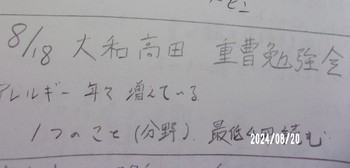 8/18 大和高田 重曹勉強会
アレルギー 年々 増えている
1つのこと(分野)、最低4回読む
2024/08/20